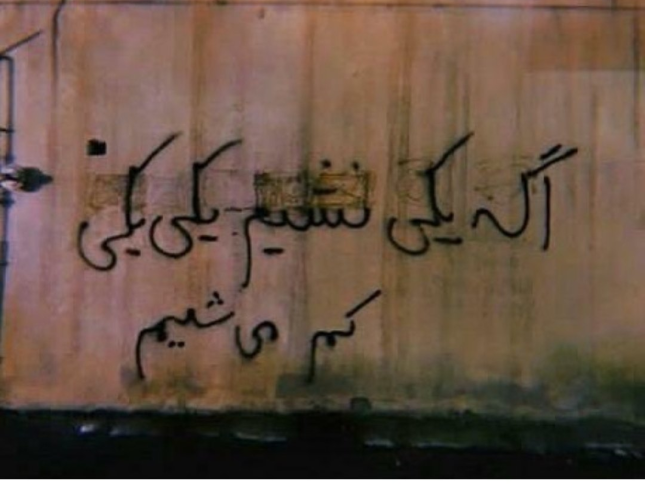 اگه یکی نشیم یکی یکی
کم می شیم